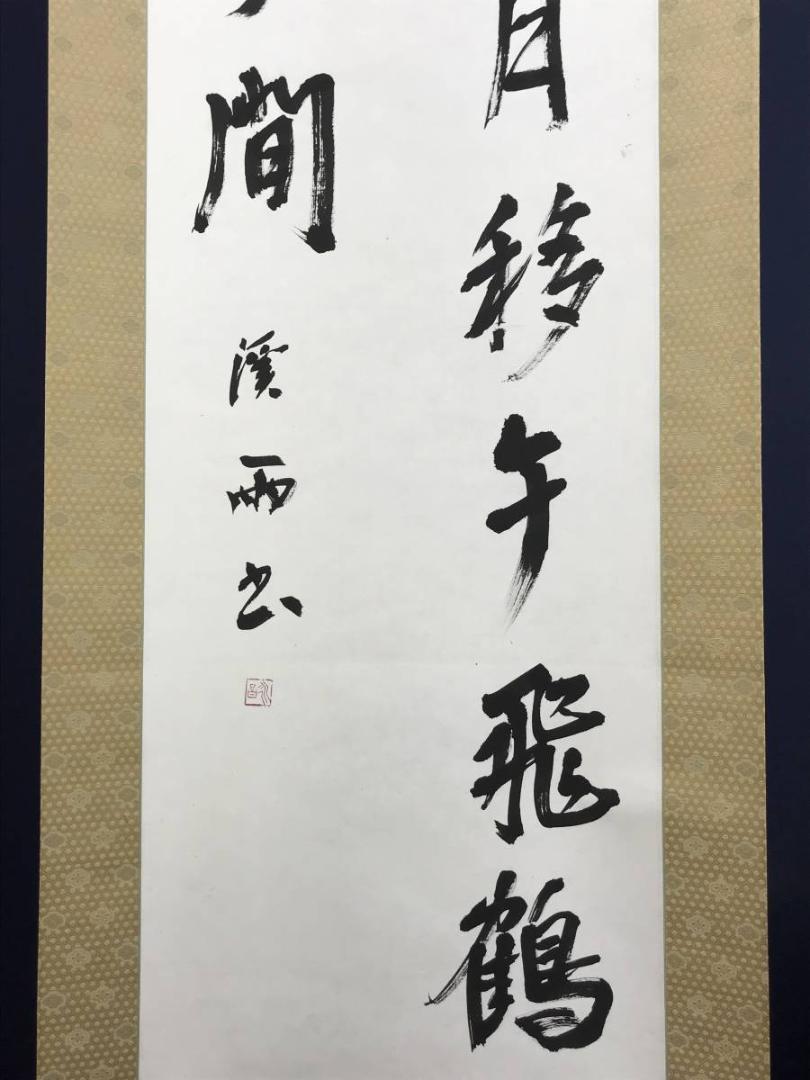 月移午飛鶴
間
溪雨書